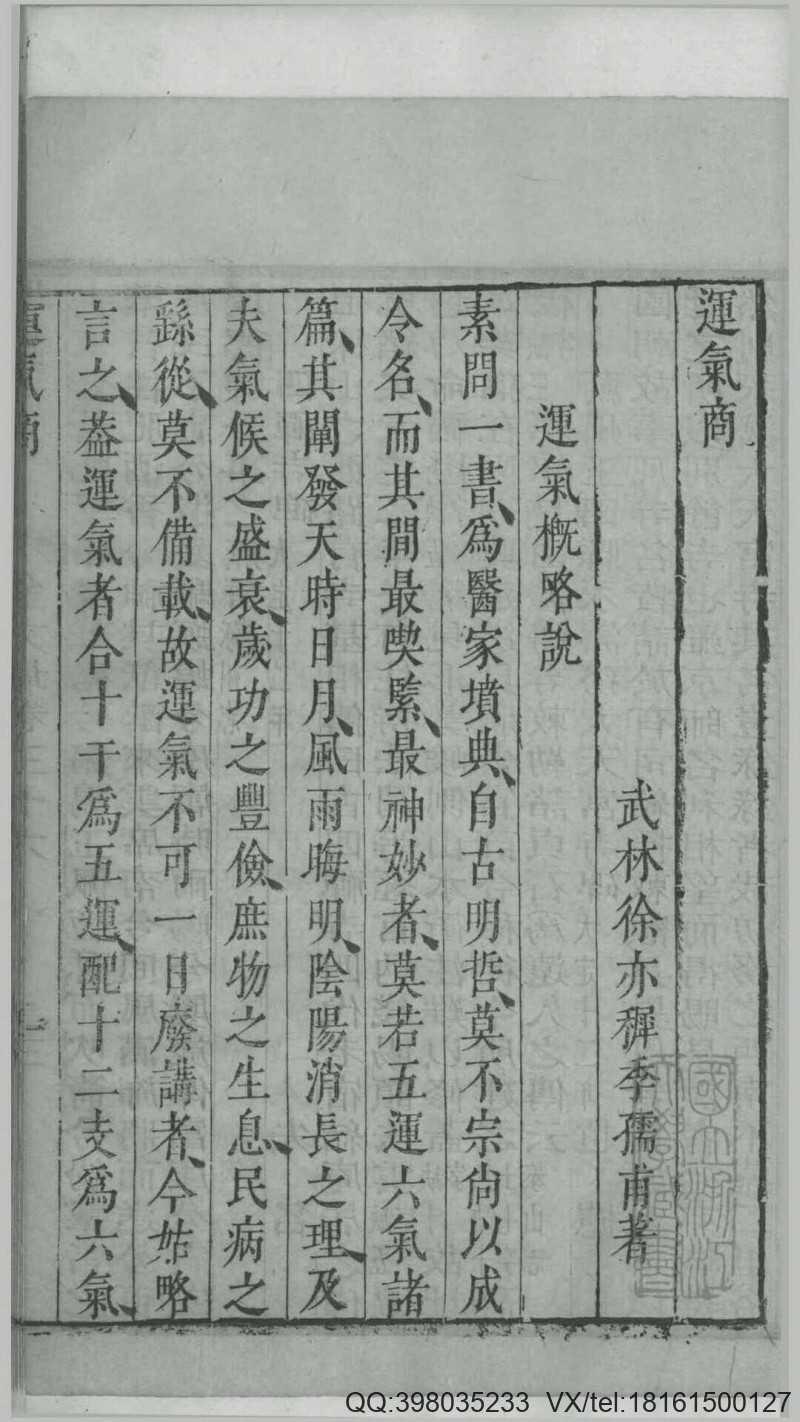 運氣商
武林徐亦穉季孺甫著
運氣概略說
素問一書、爲醫家墳典、自古明哲、莫不宗尙以成
令名、而其間最喫緊、最神妙者、莫若五運六氣諸
篇、其闡發天時日月、風雨晦明、陰陽消長之理、及
夫氣候之盛衰、歲功之豐儉、庶物之生息、民病之
繇從、莫不備載、故運氣不可一日廢講者、今姑略
言之、葢運氣者合十干爲五運、配十二支爲六氣、
運氣商
QQ:398035233 VX/tel:18161500127